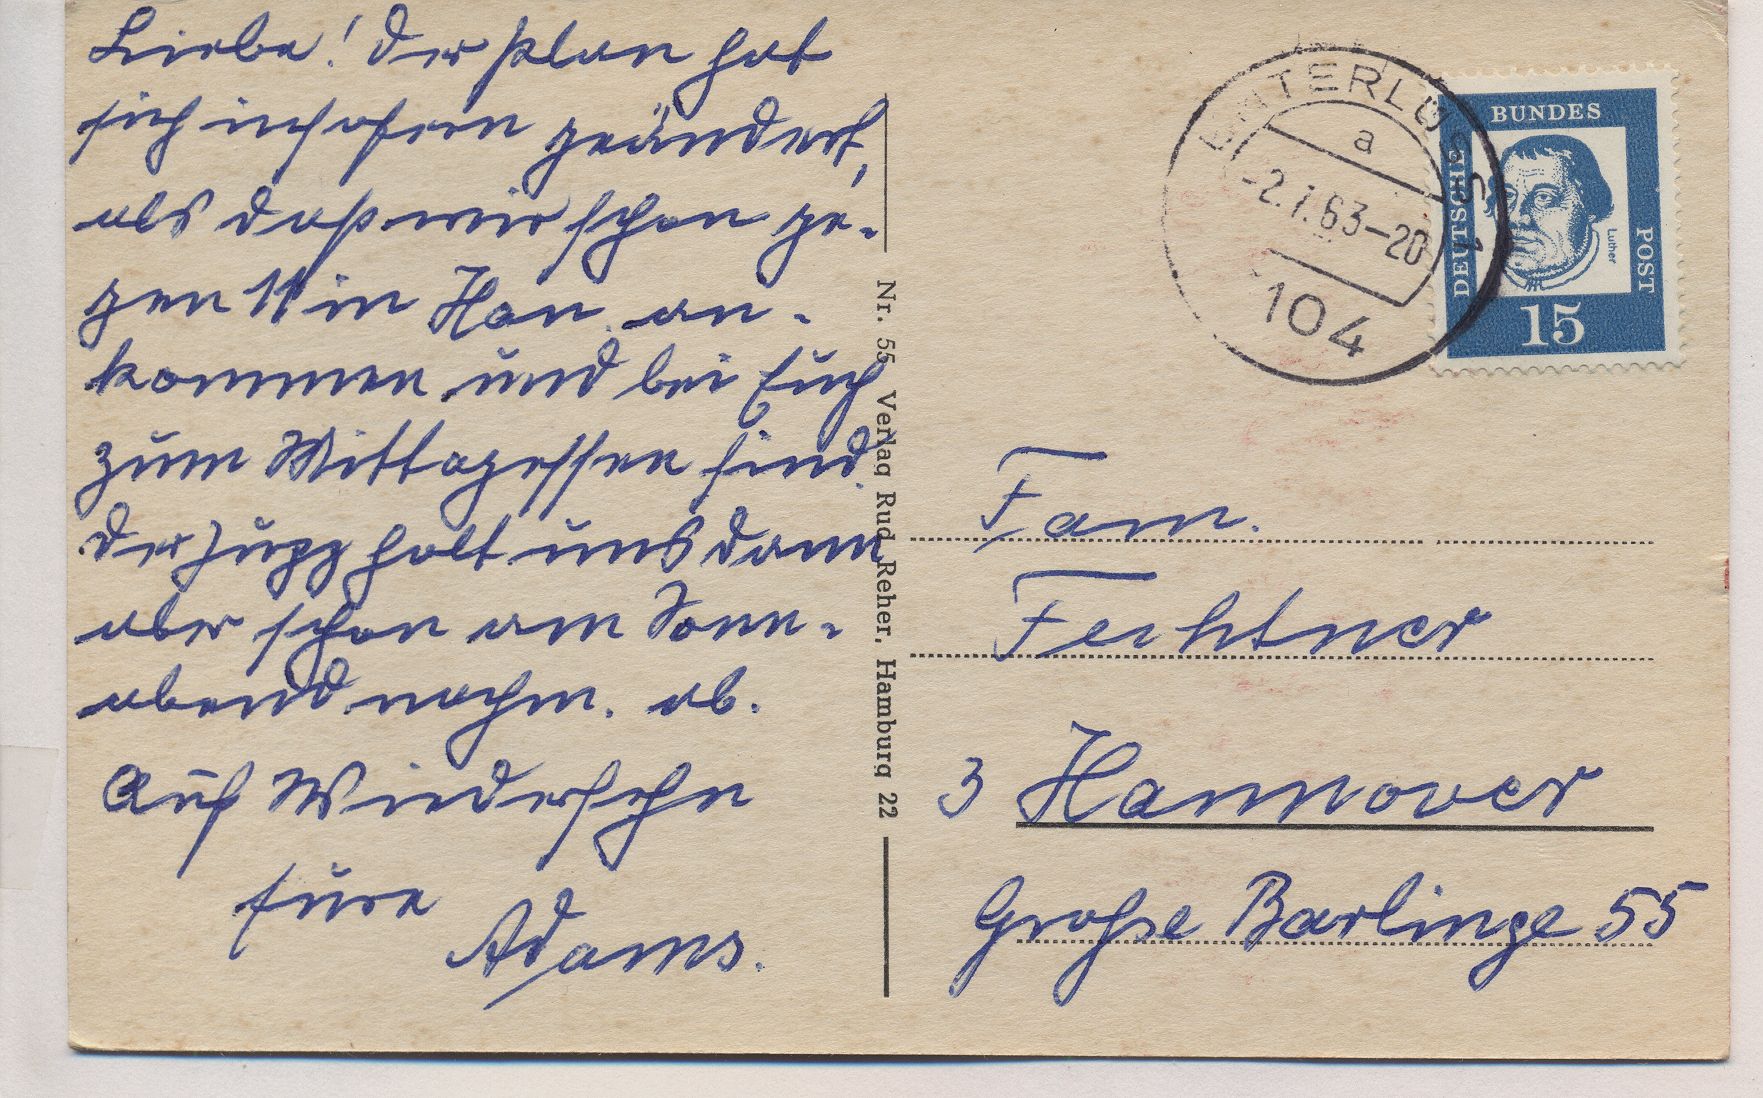 Liebe! Der Plan hat
sich insofern geändert,
als daß wir schon ge-
gen 11 in Han. an-
kommen und bei Euch
zum Mittagessen sind.
Der Jupp holt uns dann
aber schon am Sonn-
abend nachm. ab.
Auf Wiedersehn
Eure
Adams.
Nr. 55 Verlag Rud. Reher, Hamburg 22
UNTERLÜSS 1
a
-2.1.63-20
104
DEUTSCHE BUNDES POST
Luther
15
Fam.
Fechtner
3 Hannover
Große Barlinge 55